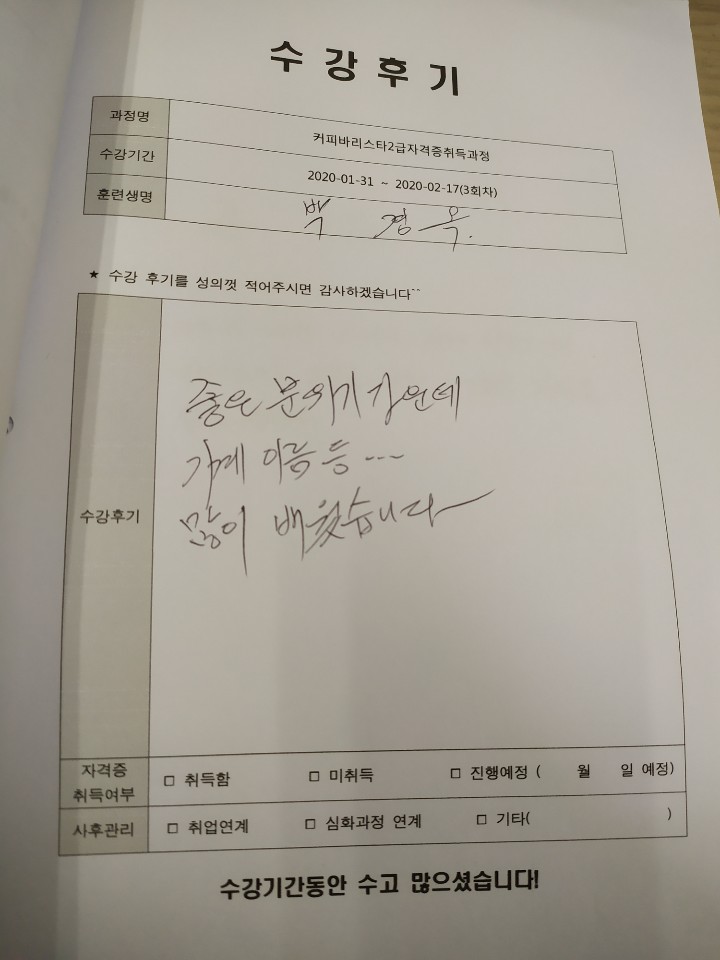 수강후기
과정명 커피바리스타2급자격증취득과정
수강기간 2020-01-31 ~ 2020-02-17(3회차)
훈련생명 박 경 옥.
★ 수강 후기를 성의껏 적어주시면 감사하겠습니다~~
수강후기
좋은 분위기 가운데
가게 이름 등 ---
많이 배웠습니다
자격증 취득여부 □ 취득함 □ 미취득 □ 진행예정 ( 월 일 예정)
사후관리 □ 취업연계 □ 심화과정 연계 □ 기타( )
수강기간동안 수고 많으셨습니다!